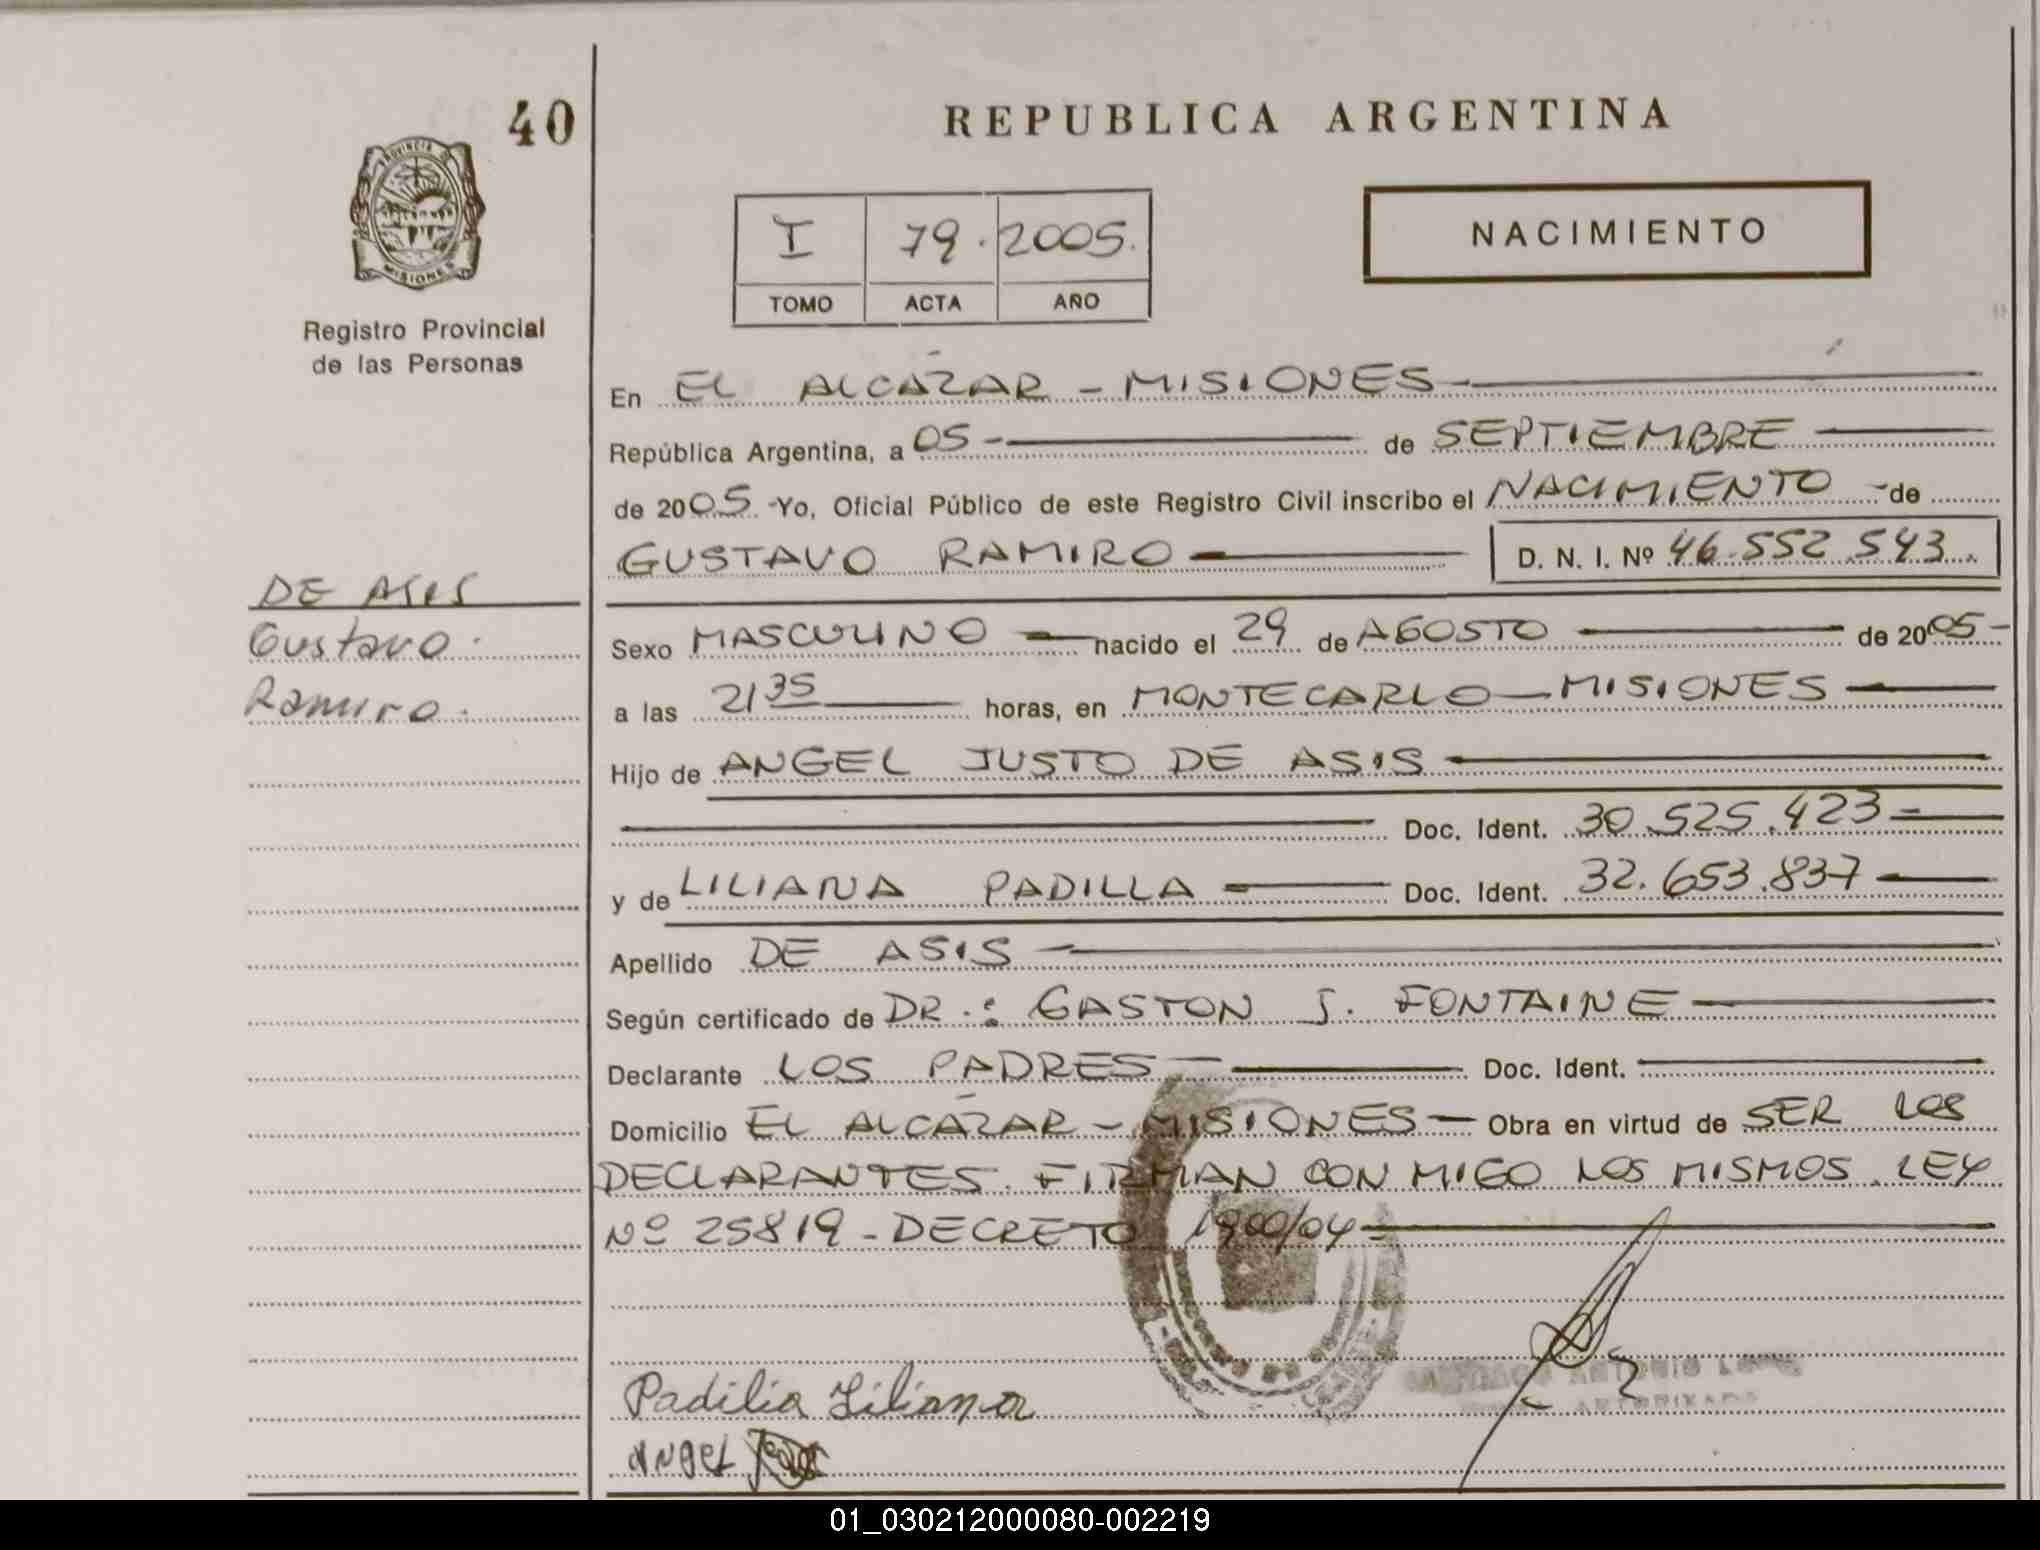 40
REPUBLICA ARGENTINA
PROVINCIA DE
MISIONES
Registro Provincial
de las Personas
I 79. 2005.
TOMO ACTA AÑO
NACIMIENTO
En EL ALCÁZAR - MISIONES
República Argentina, a 05 - de SEPTIEMBRE
de 2005. Yo, Oficial Público de este Registro Civil inscribo el NACIMIENTO - de
GUSTAVO RAMIRO D. N. I. Nº 46.552.543.
DE ASIS
Gustavo.
Ramiro.
Sexo MASCULINO nacido el 29 de AGOSTO de 2005-
a las 21 35 horas, en MONTECARLO - MISIONES
Hijo de ANGEL JUSTO DE ASIS
Doc. Ident. 30.525.423
y de LILIANA PADILLA Doc. Ident. 32.653.837
Apellido DE ASIS
Según certificado de DR.: GASTON J. FONTAINE
Declarante LOS PADRES Doc. Ident.
Domicilio EL ALCÁZAR - MISIONES - Obra en virtud de SER LOS
DECLARANTES. FIRMAN CON MIGO LOS MISMOS. LEY
Nº 25819 - DECRETO 1900/04
ANTONIO
Padilia Liliana
angel
01_030212000080-002219